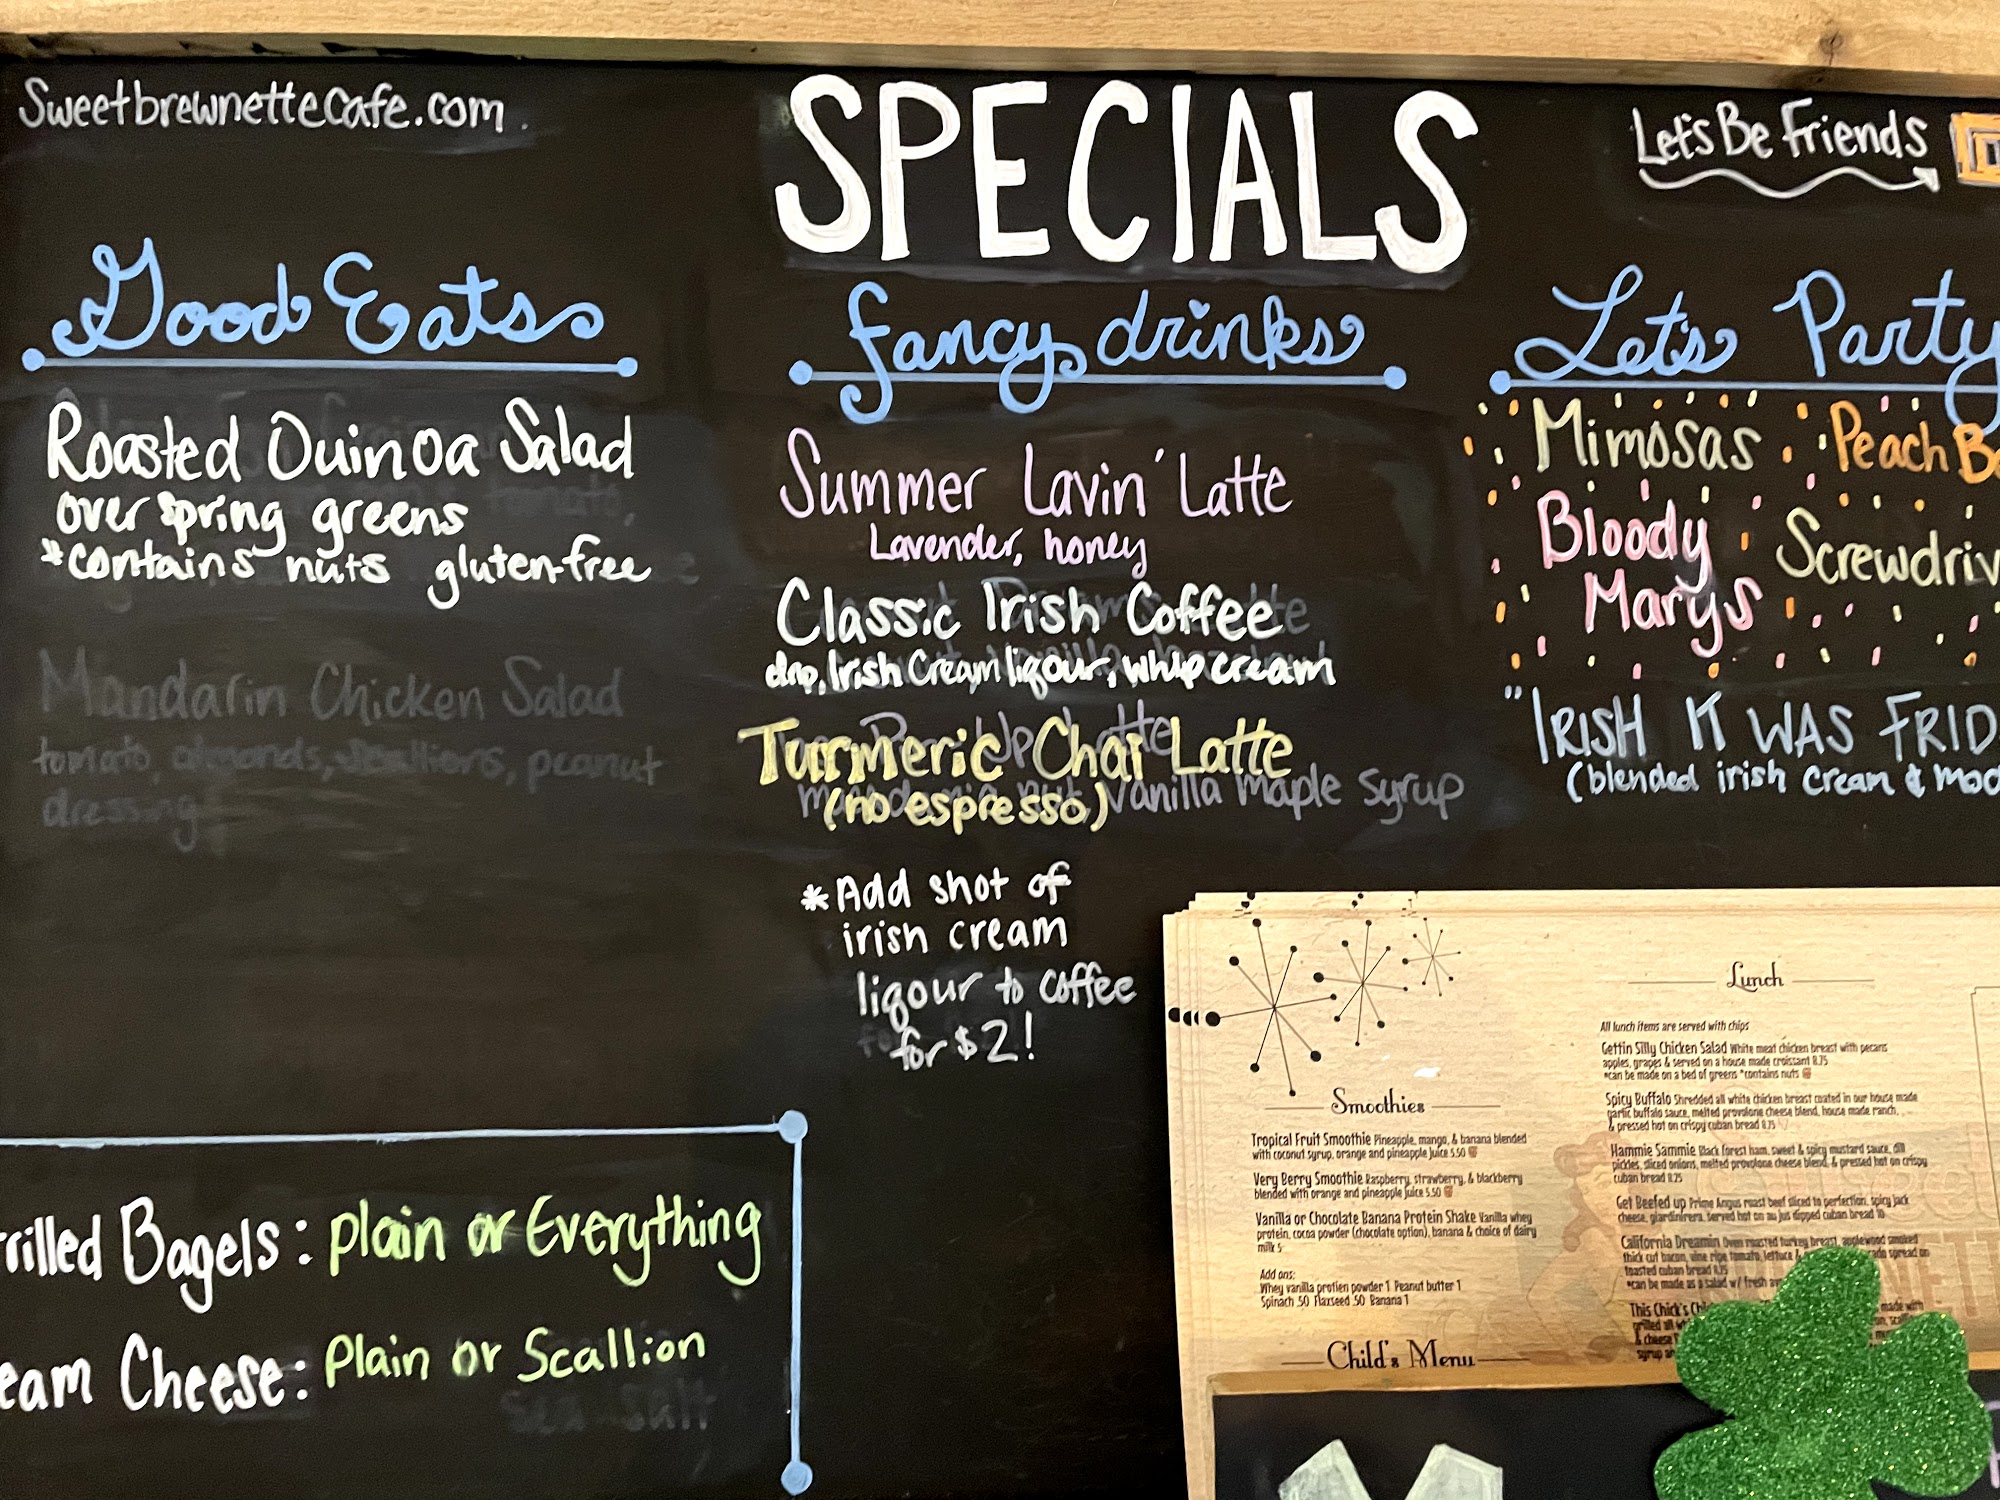 Sweetbrewnettecafe.com
SPECIALS
Let's Be Friends
Good Eats
Roasted Quinoa Salad
over spring greens
*contains nuts gluten-free
Mandarin Chicken Salad
tomato, almonds, scallions, peanut
dressing
fancy drinks
Summer Lavin' Latte
Lavender, honey
Classic Irish Coffee
drip, Irish Cream liqour, whip cream
Turmeric Chai Latte
(no espresso)
Vanilla Maple Syrup
*Add shot of
irish cream
liqour to coffee
for $2!
Let's Party
Mimosas Peach
Bloody
Marys
Screwdriv
"IRISH IT WAS FRID
(blended irish cream & moc
rilled Bagels: Plain or Everything
eam Cheese: Plain or Scallion
Sea Salt
Smoothies
Tropical Fruit Smoothie Pineapple, mango, & banana blended
with coconut syrup, orange and pineapple juice 5.50
Very Berry Smoothie Raspberry, strawberry, & blackberry
blended with orange and pineapple juice 5.50
Vanilla or Chocolate Banana Protein Shake Vanilla whey
protein, cocoa powder (chocolate option), banana & choice of dairy
milk 5
Add ons:
Whey vanilla protien powder 1 Peanut butter 1
Spinach .50 Flaxseed .50 Banana 1
Child's Menu
Lunch
All lunch items are served with chips
Gettin Silly Chicken Salad White meat chicken breast with pecans
apples, grapes & served on a house made croissant 8.75
*can be made on a bed of greens *contains nuts
Spicy Buffalo Shredded all white chicken breast coated in our house made
garlic buffalo sauce, melted provolone cheese blend, house made ranch,
& pressed hot on crispy cuban bread 8.75
Hammie Sammie Black forest ham, sweet & spicy mustard sauce, dill
pickles, sliced onions, melted provolone cheese blend, & pressed hot on crispy
cuban bread 8.25
Get Beefed up Prime Angus roast beef sliced to perfection, spicy jack
cheese, giardinirera, served hot on au jus dipped cuban bread 10
California Dreamin Oven roasted turkey breast, applewood smoked
thick cut bacon, vine ripe tomato, lettuce & spread on
toasted cuban bread 8.75
*can be made as a salad w/ fresh
This Chick's made with
grilled all
& cheese
syrup